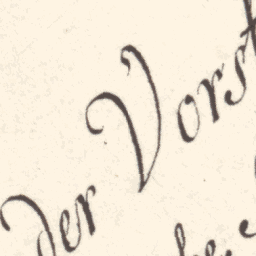 der Vorst
be